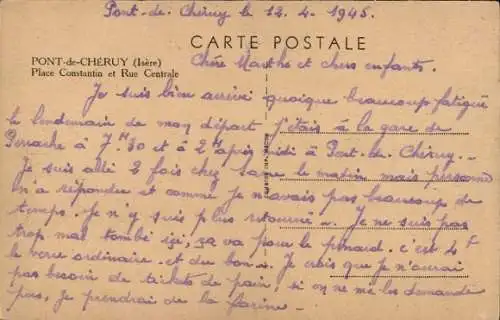 Pont-de-Chéruy le 12.4.1945.
CARTE POSTALE
PONT-de-CHÉRUY (Isère)
Place Constantin et Rue Centrale
Chère Marthe et chers enfants.
Je suis bien arrivé quoique beaucoup fatigué
le lendemain de mon départ. J'étais à la gare de
Perrache à 7H30 et à 2H après midi à Pont-de-Chéruy.-
Je suis allé 2 fois chez le matin mais personne
n'a répondre et comme je n'avais pas beaucoup de
temps. Je n'y suis plus retourné.- Je ne suis pas
trop mal tombé ici, ça va pour le pinard. c'est 4f
le verre ordinaire. et du bon.- Je crois que je n'aurai
pas besoin de tickets de pain, si on ne me les demande
pas, je prendrai de la farine.-